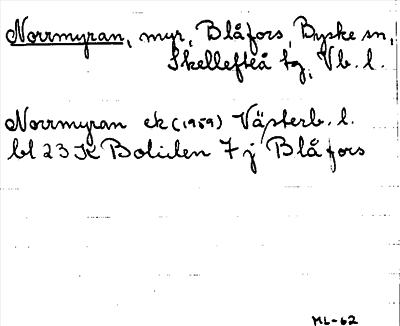 Norrmyran, myr, Blåfors, Byske sn,
Skellefteå tg, Vb. l.
Norrmyran ek (1959) Västerb. l.
bl 23 K Boliden 7 j Blåfors
ML-62